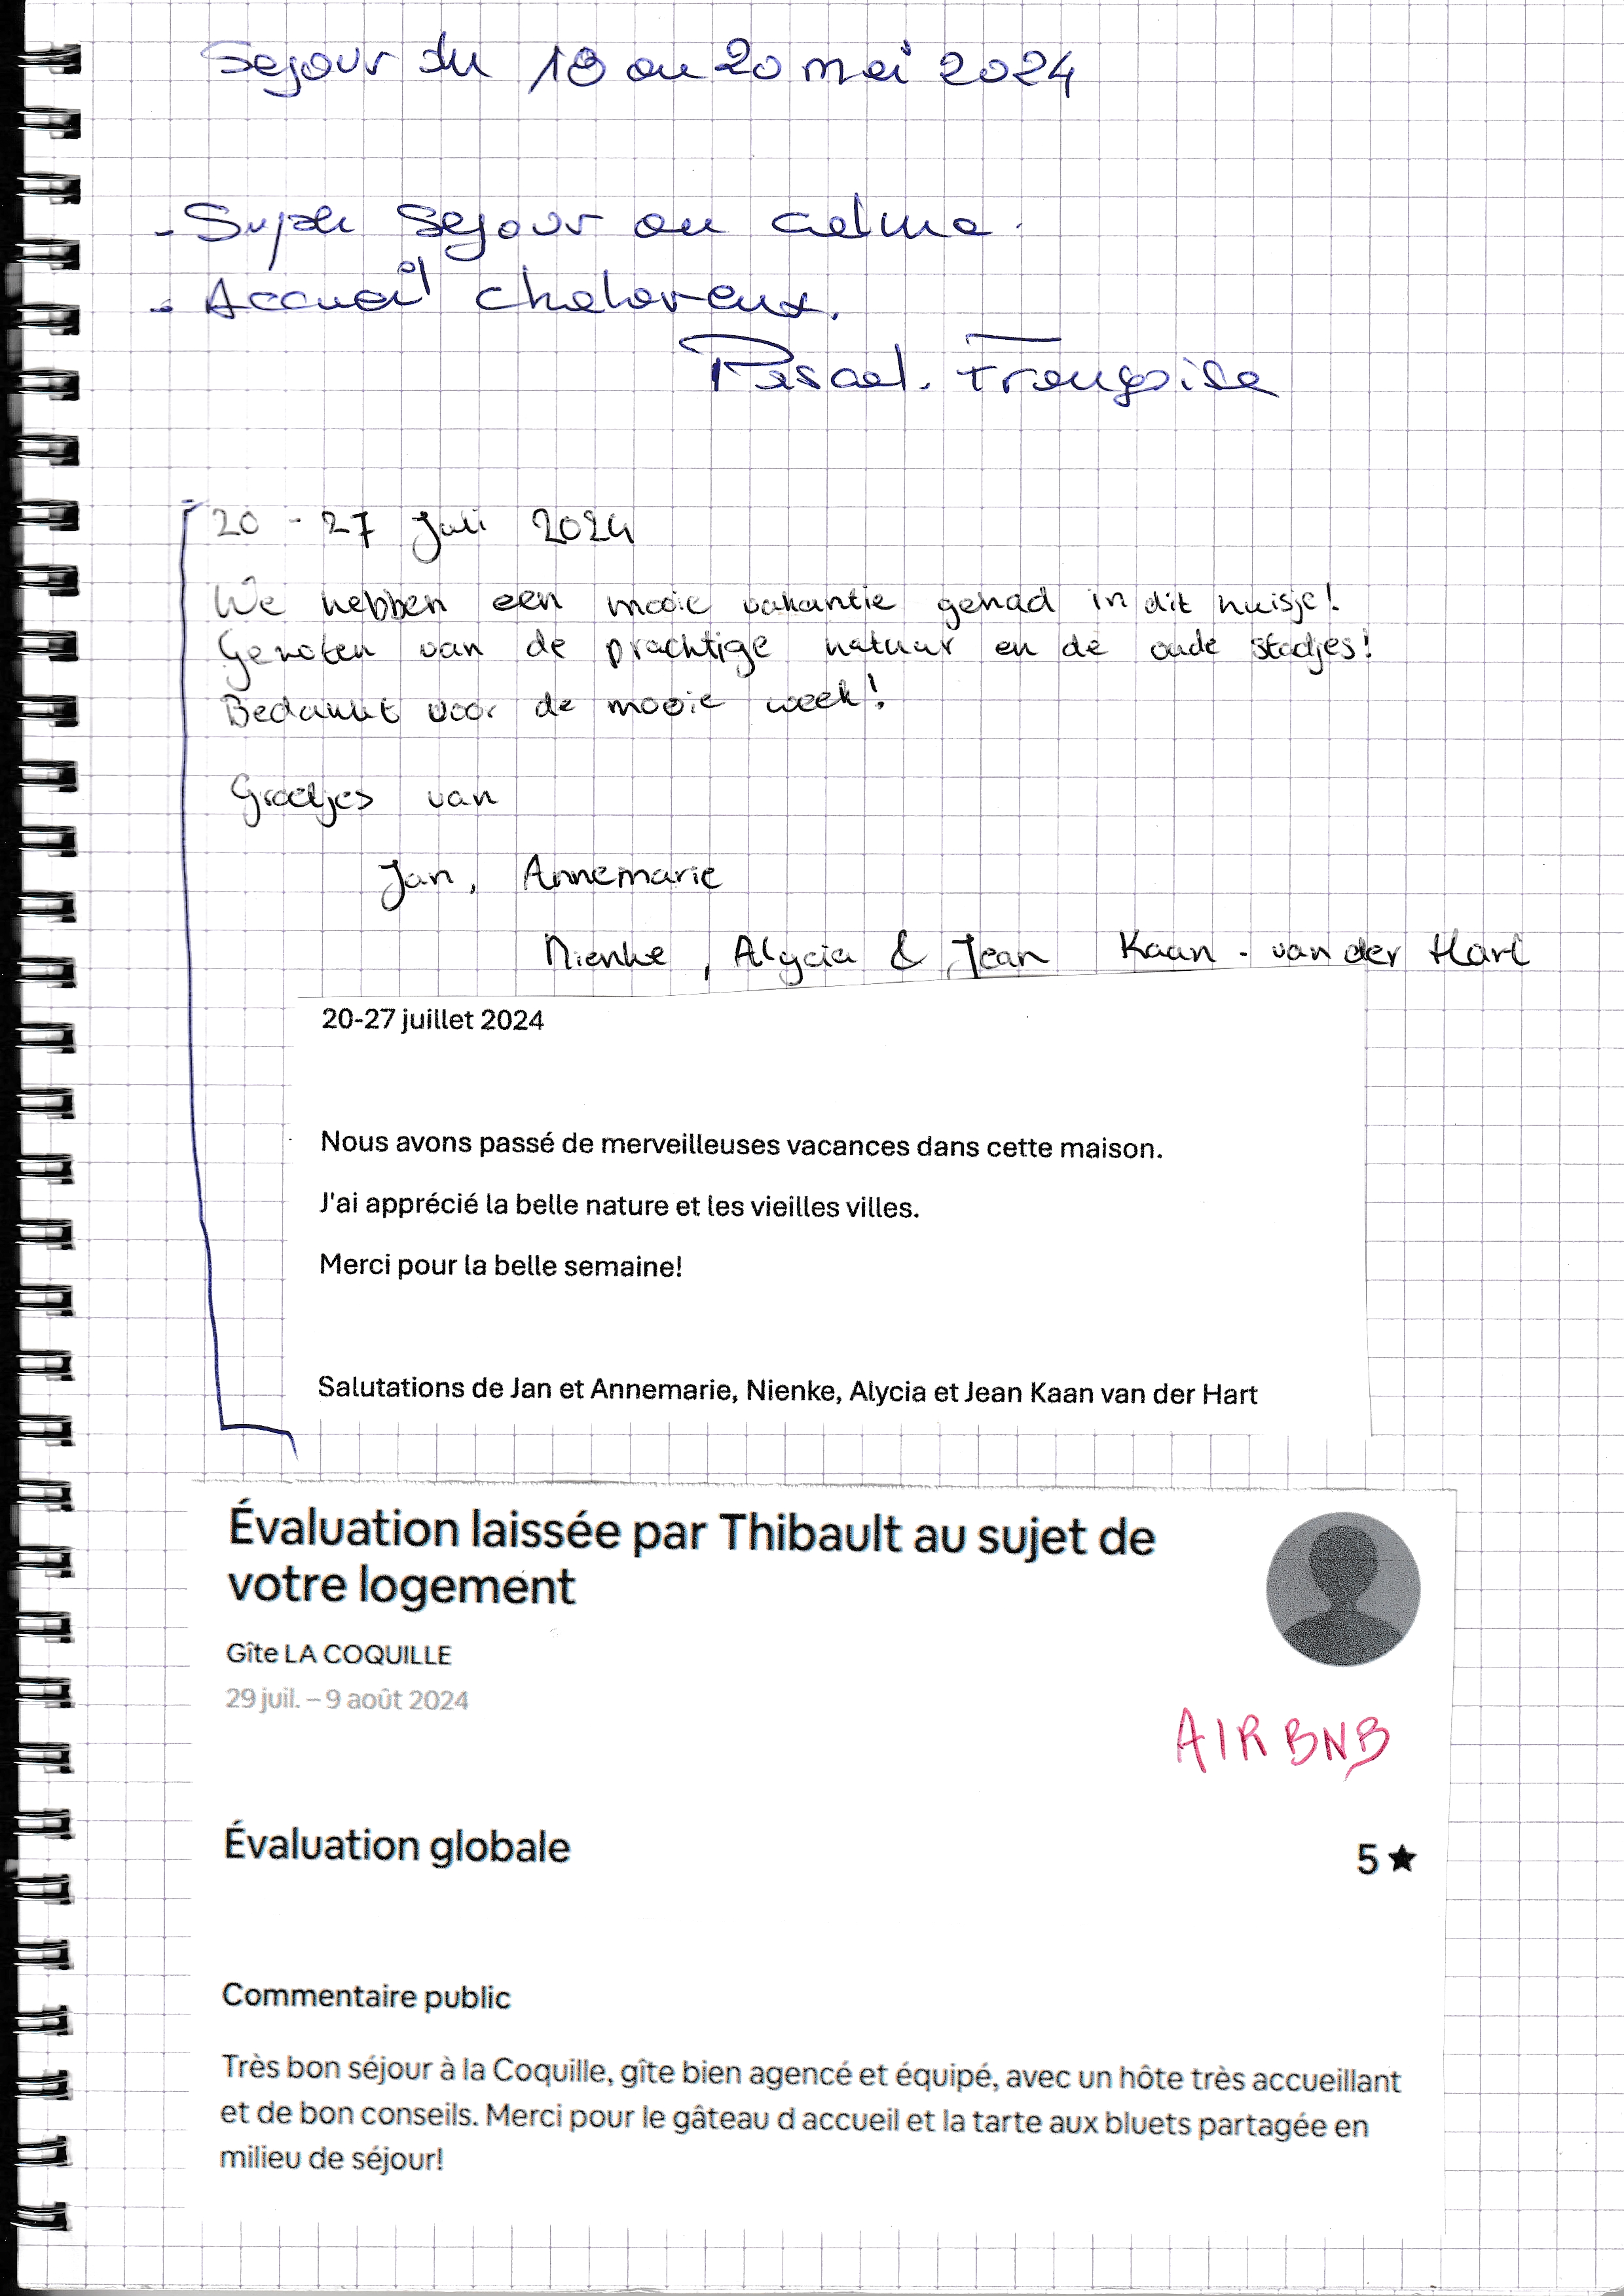 Sejour du 18 au 20 mai 2024
- Super Sejour au calme.
- Accueil chaloreux.
Pascal. Françoise
20 - 27 Juli 2024
We hebben een mooie vakantie gehad in dit huisje!
Genoten van de prachtige natuur en de oude stadjes!
Bedankt voor de mooie week!
Groetjes van
Jan, Annemarie
Nienke, Alycia & Jean Kaan - van der Hart
20-27 juillet 2024
Nous avons passé de merveilleuses vacances dans cette maison.
J'ai apprécié la belle nature et les vieilles villes.
Merci pour la belle semaine!
Salutations de Jan et Annemarie, Nienke, Alycia et Jean Kaan van der Hart
Évaluation laissée par Thibault au sujet de
votre logement
Gîte LA COQUILLE
29 juil. – 9 août 2024
AIRBNB
Évaluation globale
5 ★
Commentaire public
Très bon séjour à la Coquille, gîte bien agencé et équipé, avec un hôte très accueillant
et de bon conseils. Merci pour le gâteau d accueil et la tarte aux bluets partagée en
milieu de séjour!